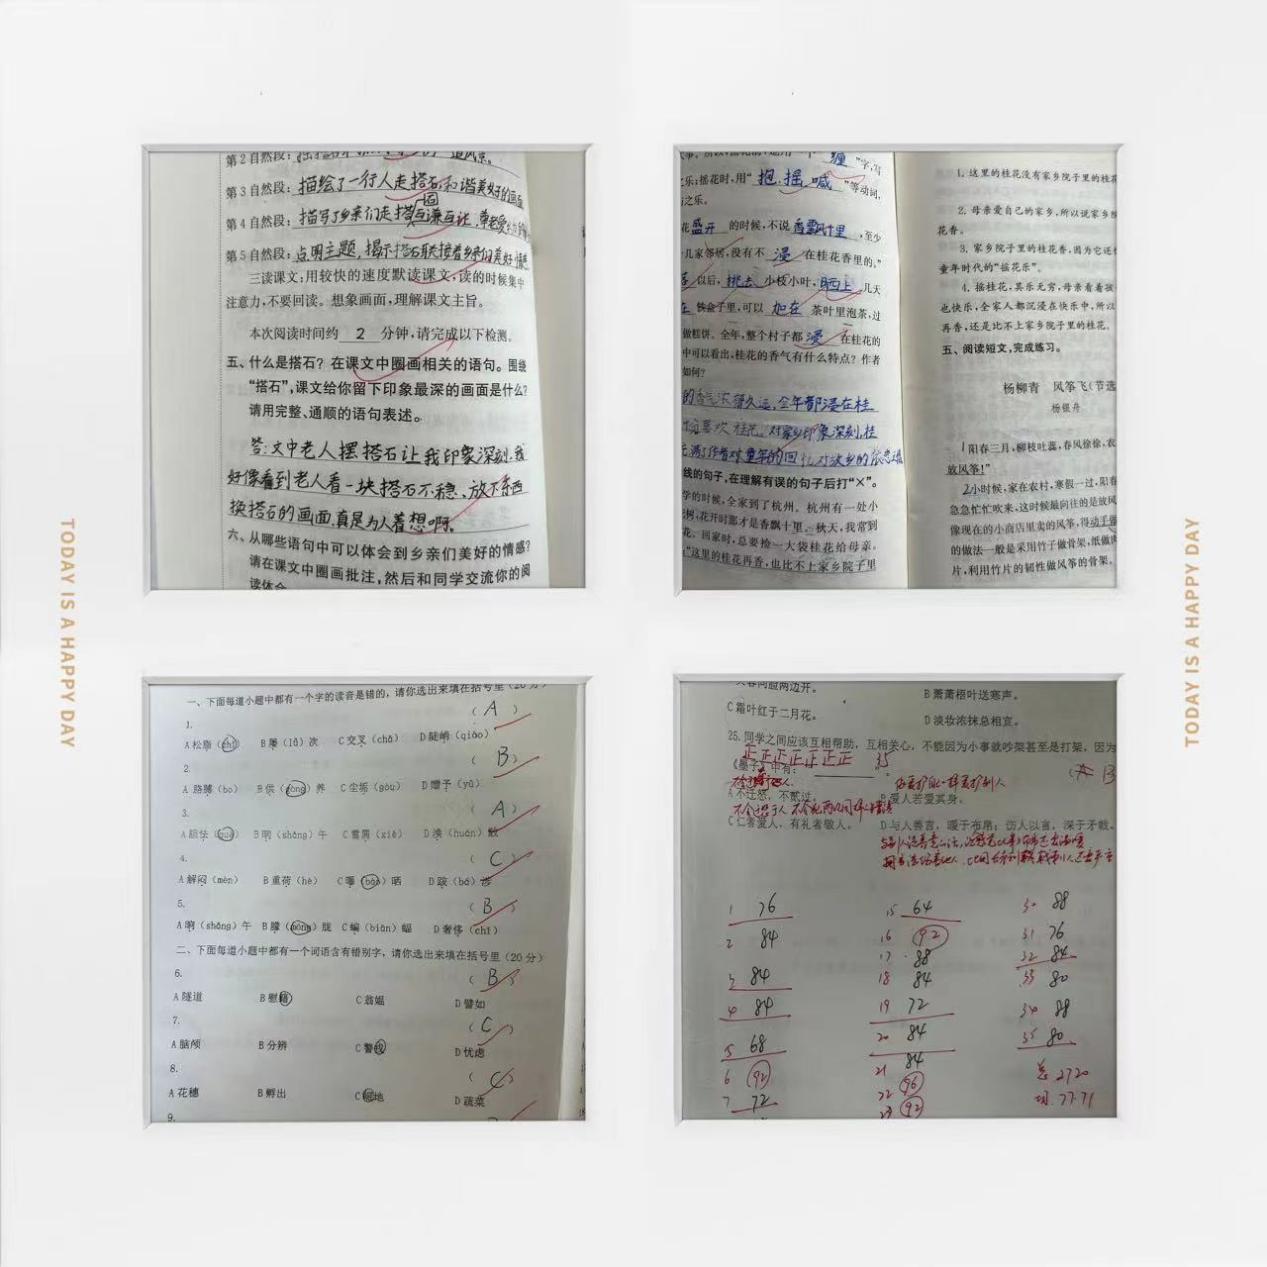 第2自然段：
第3自然段：描绘了一行人走搭石，和谐美好的画面
第4自然段：描写了乡亲们走搭
第5自然段：点明主题，揭示搭石联接着乡亲们美好情感
三读课文：用较快的速度默读课文，读的时候集中
注意力，不要回读。想象画面，理解课文主旨。
本次阅读时间约 2 分钟，请完成以下检测。
五、什么是搭石？在课文中圈画相关的语句。围绕
“搭石”，课文给你留下印象最深的画面是什么？
请用完整、通顺的语句表述。
答：文中老人摆搭石让我印象深刻，我
好像看到老人看一块搭石不稳、放下东西
换搭石的画面，真是为人着想啊。
六、从哪些语句中可以体会到乡亲们美好的情感？
请在课文中圈画批注，然后和同学交流你的阅
读体会
缠 ”字，写
之乐；摇花时，用“ 抱、摇、喊 ”等动词，
之乐。
花 盛开 的时候，不说 香飘十里 ，至少
几家邻居，没有不 浸 在桂花香里的。”
以后， 挑去 小枝小叶， 晒上 几天
铁盒子里，可以 加在 茶叶里泡茶，过
做糕饼。全年，整个村子都 浸 在桂花的
中可以看出，桂花的香气有什么特点？作者
如何？
全年都浸在桂
喜欢桂花，对家乡印象深刻，桂
线的句子，在理解有误的句子后打“×”。
学的时候，全家到了杭州。杭州有一处小
树，花开时那才是香飘十里。秋天，我常到
花。回家时，总要捡一大袋桂花给母亲。
“这里的桂花再香，也比不上家乡院子里
1. 这里的桂花没有家乡院子里的桂花
2. 母亲爱自己的家乡，所以说家乡院
花香。
3. 家乡院子里的桂花香，因为它还
童年时代的“摇花乐”。
4. 摇桂花，其乐无穷，母亲看着孩
也快乐，全家人都沉浸在快乐中，所以
再香，还是比不上家乡院子里的桂花。
五、阅读短文，完成练习。
杨柳青 风筝飞（节选
杨银舟
1阳春三月，柳枝吐蕊，春风徐徐，农
放风筝！”
2小时候，家在农村，寒假一过，阳春
急急忙忙吹来，这时候最向往的是放风
像现在的小商店里卖的风筝，得动手
的做法一般是采用竹子做骨架，纸做
片，利用竹片的韧性做风筝的骨架。
一、下面每道小题中都有一个字的读音是错的，请你选出来填在括号里（20分）
1.
（ A ）
A松脂（zhǐ） B屡（lǚ）次 C交叉（chā） D陡峭（qiào）
2.
（ B ）
A胳膊（bo） B供（gòng）养 C尘垢（gòu） D赠予（yǔ）
3.
（ A ）
B晌（shǎng）午 C雪屑（xiè） D涣（huàn）散
4.
（ C ）
A解闷（mèn） B重荷（hè） D跋（bá）涉
5.
（ B ）
A晌（shǎng）午 B朦（mōng）胧 C蝙（biān）蝠 D奢侈（chǐ）
二、下面每道小题中都有一个词语含有错别字，请你选出来填在括号里（20分）
6.
（ B ）
A隧道 D譬如
7.
（ C ）
A脑颅 B分辨 D忧虑
8.
（ C ）
A花穗 B孵出 D蔬菜
9.
B萧萧梧叶送寒声。
C霜叶红于二月花。
D淡妆浓抹总相宜。
25. 同学之间应该互相帮助，互相关心，不能因为小事就吵架甚至是打架，因为
正正正正正正正 35
《墨子》中有：
B
A不迁怒，不贰过。 B爱人若爱其身。
C仁者爱人，有礼者敬人。 D与人善言，暖于布帛；伤人以言，深于矛戟。
1 76 15 64 30 88
2 84 16 92 31 76
3 84 17 88 32 84
4 84 18 84 33 80
5 68 19 72 34 88
6 92 20 84 35 80
7 72 21 84
22 96
23 92
总 2720
均 77.71
TODAY IS A HAPPY DAY
TODAY IS A HAPPY DAY